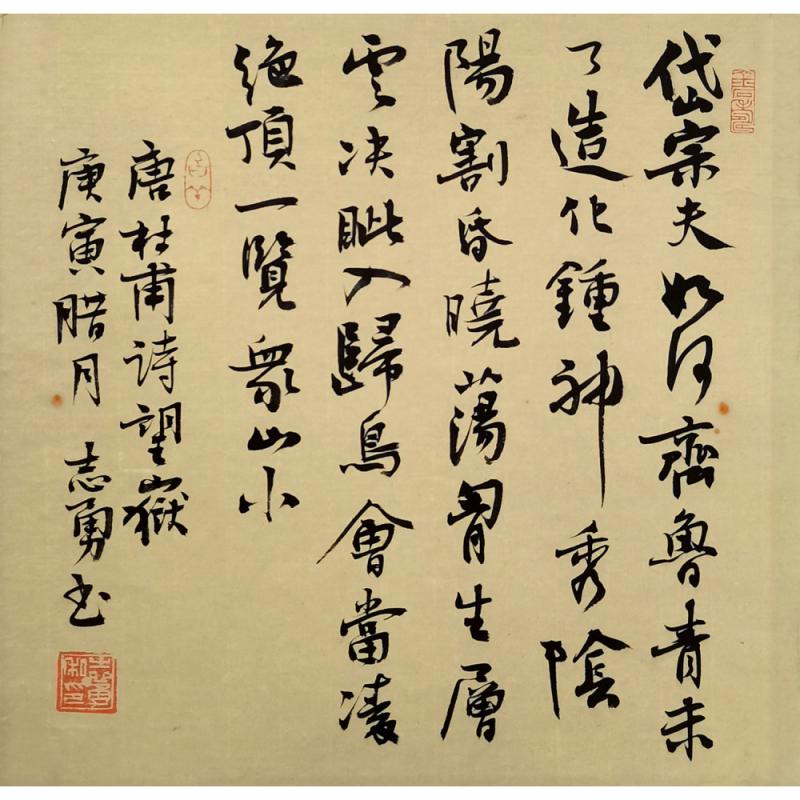 岱宗夫如何齊魯青未
了造化鍾神秀陰
陽割昏曉蕩胷生層
雲决眦入歸鳥會當凌
絶頂一覽衆山小
唐杜甫詩望嶽
庚寅腊月 志勇书